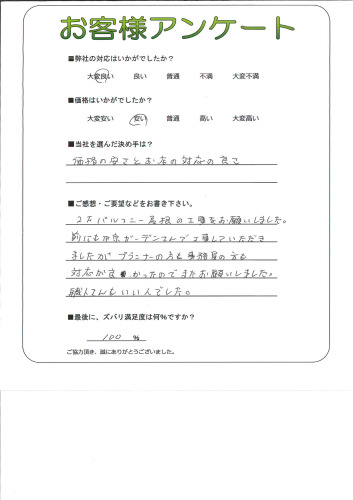 お客様アンケート
■弊社の対応はいかがでしたか？
大変良い 良い 普通 不満 大変不満
■価格はいかがでしたか？
大変安い 安い 普通 高い 大変高い
■当社を選んだ決め手は？
価格の安さとお店の対応の良さ
■ご感想・ご要望などをお書き下さい。
バルコニー屋根の工事をお願いしました。
前にも ガーデンさんで工事していただき
ましたが プランナーの方も事務員の方も
対応が良 かったのでまたお願いしました。
職人さんもいい人でした。
■最後に、ズバリ満足度は何％ですか？
100 %
ご協力頂き、誠にありがとうございました。